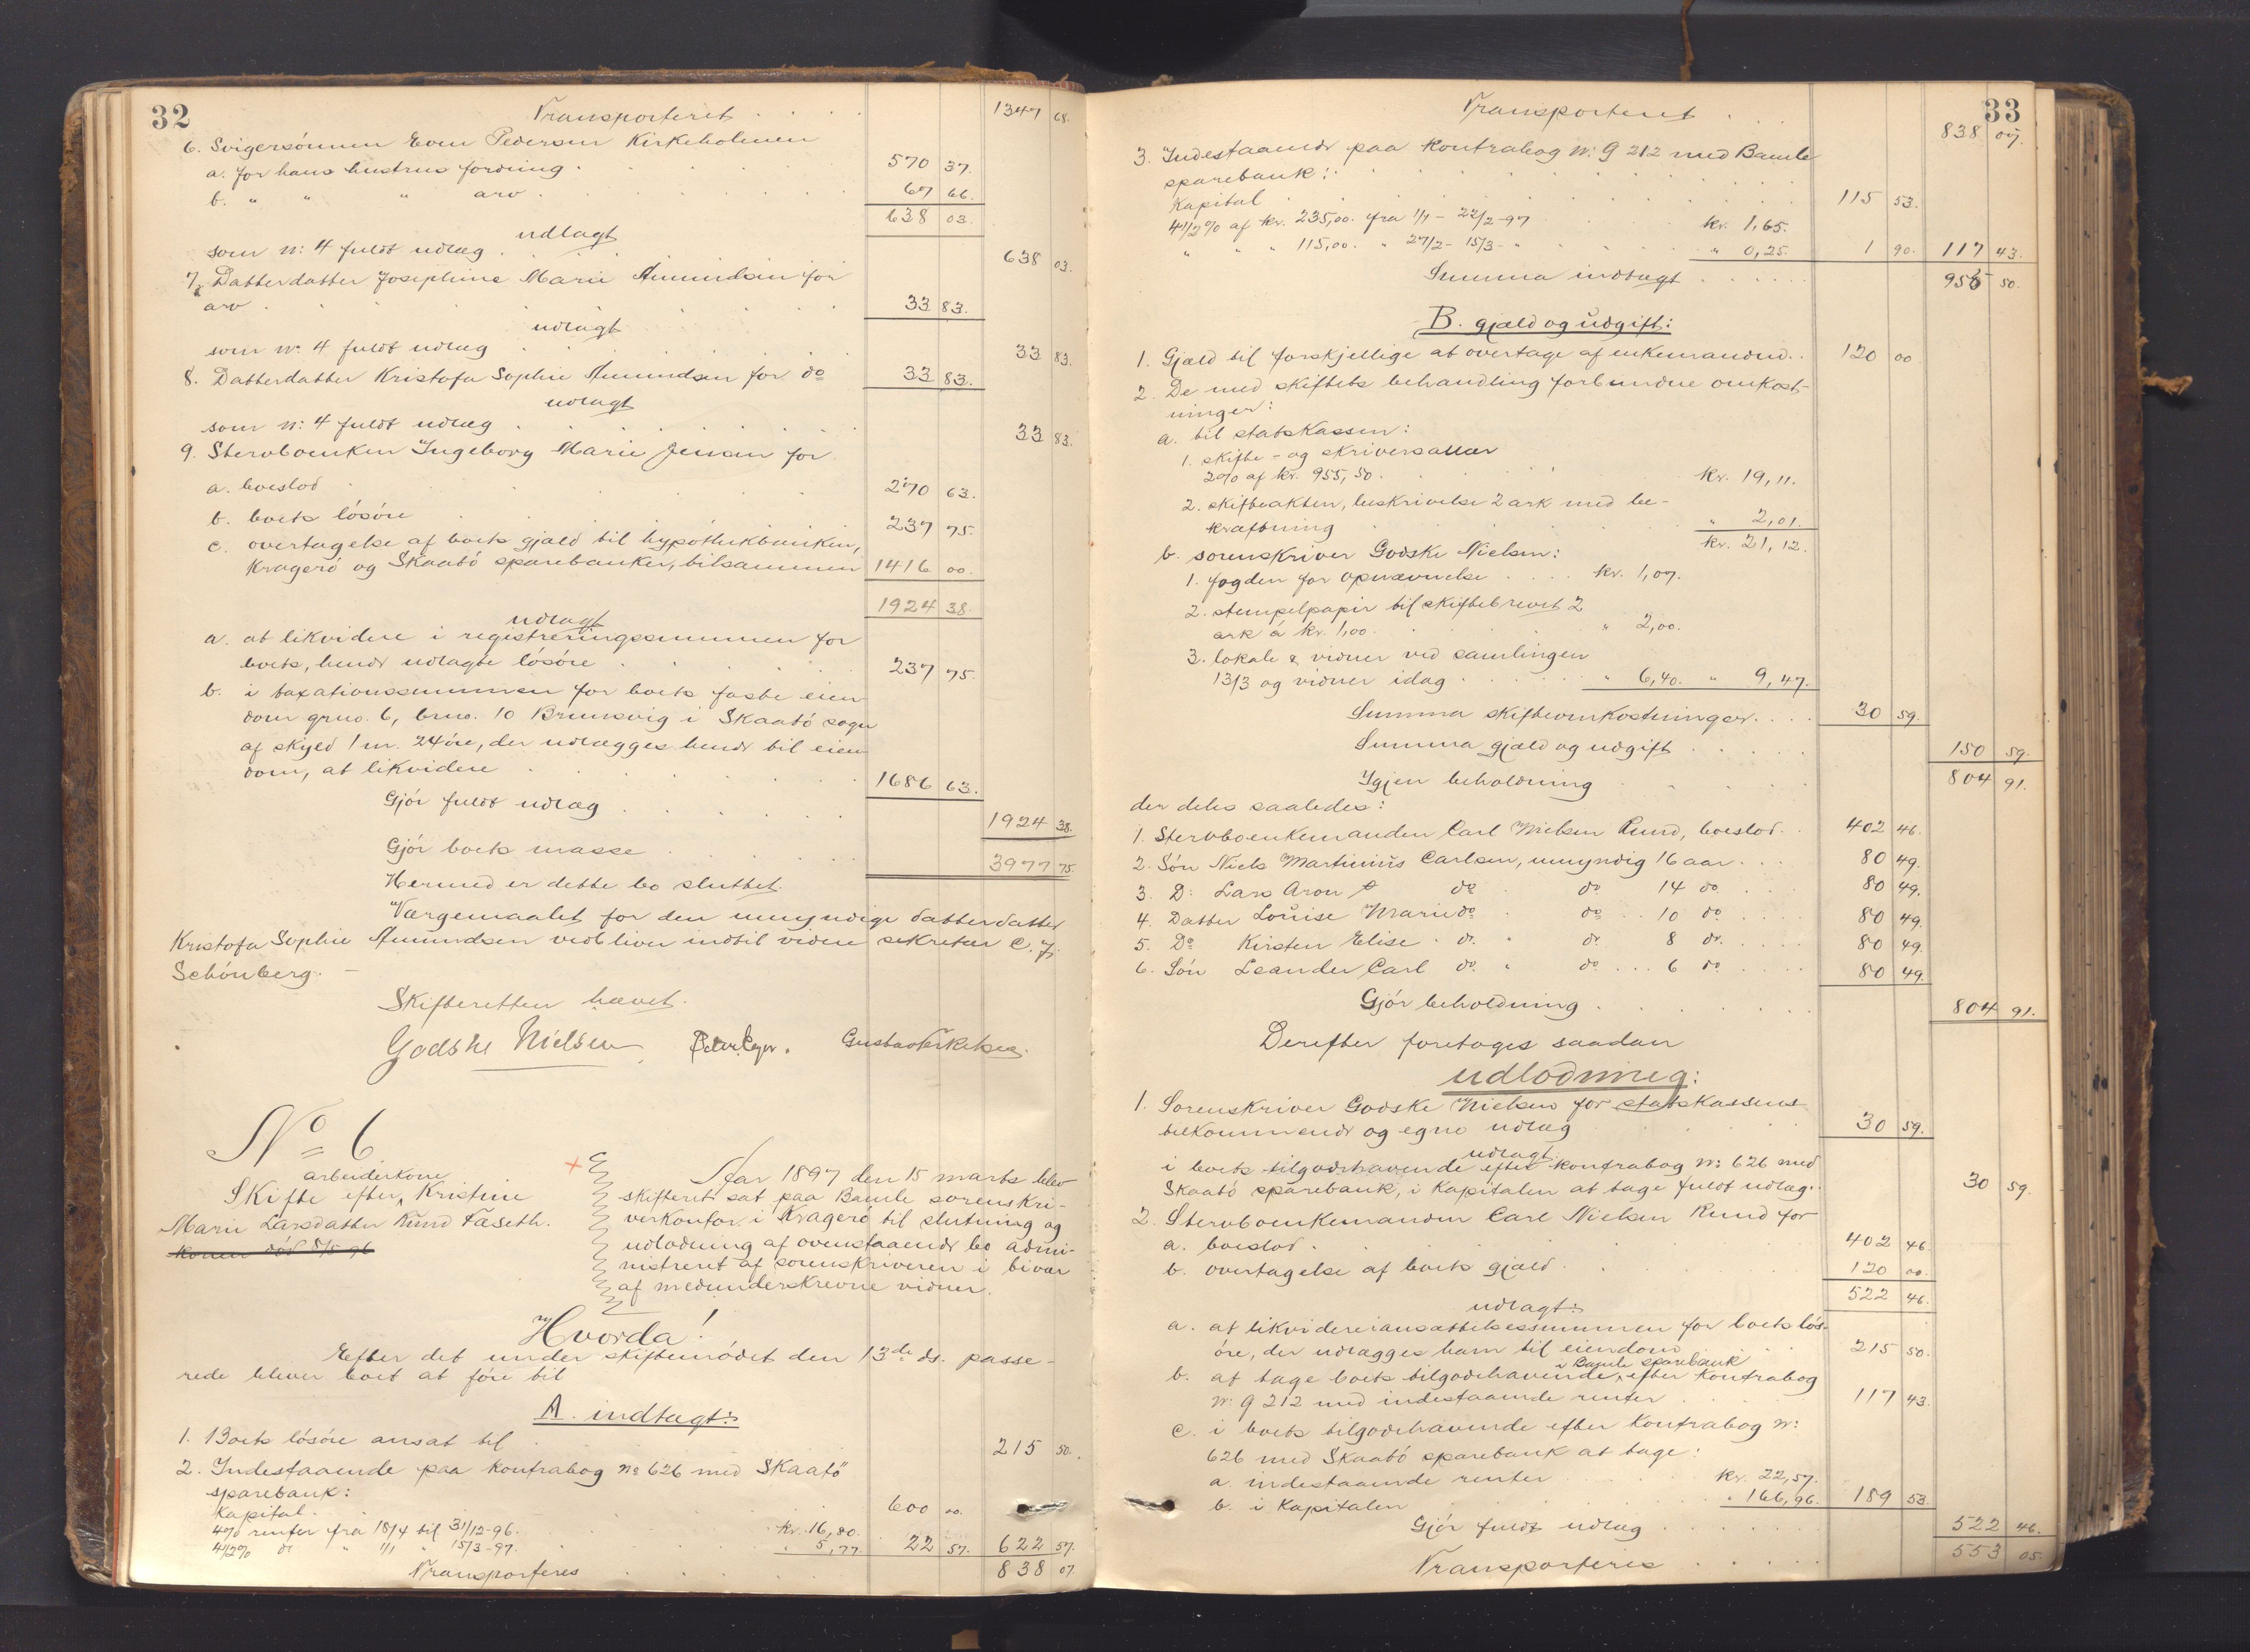 32
Transporteret 1347 68.
6. Svigersønnen Even Pedersen Kirkeholmen
a. for hans hustrus fordring 570 37.
b. " " " arv 67 66.
638 03.
udlagt
som n: 4 fuldt udlæg 638 03.
7. Datterdatter Josephine Marie Amundsen for
arv 33 83.
udlagt
som n: 4 fuldt udlæg 33 83.
8. Datterdatter Kristofa Sophie Amundsen for do 33 83.
udlagt
som n: 4 fuldt udlæg 33 83.
9. Stervboenken Ingeborg Marie Jensen for
a. boeslod 270 63.
b. boets løsøre 237 75.
c. overtagelse af boets gjæld til hypothekbanken,
Kragerø og Skaatø sparebanker, tilsammen 1416 00.
1924 38.
udlagt
a. at likvidere i registreringssummen for
boets, hende udlagte løsøre 237 75.
b. i taxationssummen for boets faste eien
dom grno. 6, brno. 10 Brunsvig i Skaatø sogn
af skyld 1 m. 24 øre, der udlægges hende til eien
dom, at likvidere 1686 63.
Gjør fuldt udlæg 1924 38.
Gjør boets masse 3977 75.
Hermed er dette bo sluttet.
Værgemaalet for den umyndige datterdatter
Kristofa Sophie Amundsen vedbliver indtil videre sekretær C. J.
Schønberg. –
Skifteretten hævet.
Godske Nielsen Gustav Eriksen.
No 6
arbeiderkone
Skifte efter Kristine
Marie Larsdatter Rund Taseth.
konen død 8/5 96
Aar 1897 den 15 marts blev
skifteret sat paa Bamle sorenskri-
verkontor i Kragerø til slutning og
udlodning af ovenstaaende bo admi-
nistreret af sorenskriveren i bivær
af medunderskrevne vidner.
Hvorda!
Efter det under skiftemødet den 13de ds. passe-
rede bliver boet at føre til
A. indtægt:
1. Boets løsøre ansat til 215 50.
2. Indestaaende paa kontrabog No 626 med Skaatø
sparebank:
Kapital 600 00.
4% renter fra 18/4 til 31/12-96. kr. 16,80.
4 1/2% do " 1/1 " 15/3-97. " 5,77. 22 57. 622 57.
Transporteres 838 07.
33
Transporteret 838 07.
3. Indestaaende paa kontrabog n: 9212 med Bamle
sparebank:
Kapital 115 53.
4 1/2% af kr. 235,00. fra 1/1 - 27/2-97 kr. 1,65.
" " " 115,00. " 27/2 - 15/3- " " 0,25. 1 90. 117 43.
Summa indtægt 955 50.
B. gjæld og udgift:
1. Gjæld til forskjellige at overtage af enkemanden 120 00
2. De med skiftets behandling forbundne omkost-
ninger:
a. til statskassen:
1. skifte- og skriversallær
2% af kr. 955,50. kr. 19,11.
2. skifteakten, beskrivelse 2 ark med be-
kræftning " 2,01.
kr. 21,12.
b. sorenskriver Godske Nielsen:
1. fogden for opnævnelse kr. 1,07.
2. stempelpapir til skiftebrevet 2
ark á kr. 1,00. " 2,00.
3. lokale & vidner ved samlingen
13/3 og vidner idag " 6,40. " 9,47.
Summa skifteomkostninger 30 59.
Summa gjæld og udgift 150 59.
Igjen beholdning 804 91.
der deles saaledes:
1. Stervboenkemanden Carl Nielsen Rund, boeslod 402 46.
2. Søn Niels Martinius Carlsen, umyndig 16 aar 80 49.
3. Do Lars Aron do do 14 do 80 49.
4. Datter Louise Marie do do 10 do 80 49.
5. Do Kirsten Elise do do 8 do 80 49.
6. Søn Leander Carl do do 6 do 80 49.
Gjør beholdning 804 91.
Derefter foretages saadan
udlodning:
1. Sorenskriver Godske Nielsen for statskassens
tilkommende og egne udlæg 30 59.
udlagt
i boets tilgodehavende efter kontrabog n: 626 med
Skaatø sparebank, i kapitalen at tage fuldt udlæg 30 59.
2. Stervboenkemanden Carl Nielsen Rund for
a. boeslod 402 46.
b. overtagelse af boets gjæld 120 00.
522 46.
udlagt:
a. at likvidere i ansættelsessummen for boets løs-
øre, der udlægges ham til eiendom 215 50.
i Bamle sparebank
b. at tage boets tilgodehavende, efter kontrabog
n: 9212 med indestaaende renter 117 43.
c. i boets tilgodehavende efter kontrabog n:
626 med Skaatø sparebank at tage:
a. indestaaende renter kr. 22,57.
b. i kapitalen " 166,96. 189 53.
Gjør fuldt udlæg 522 46.
Transporteres 553 05.